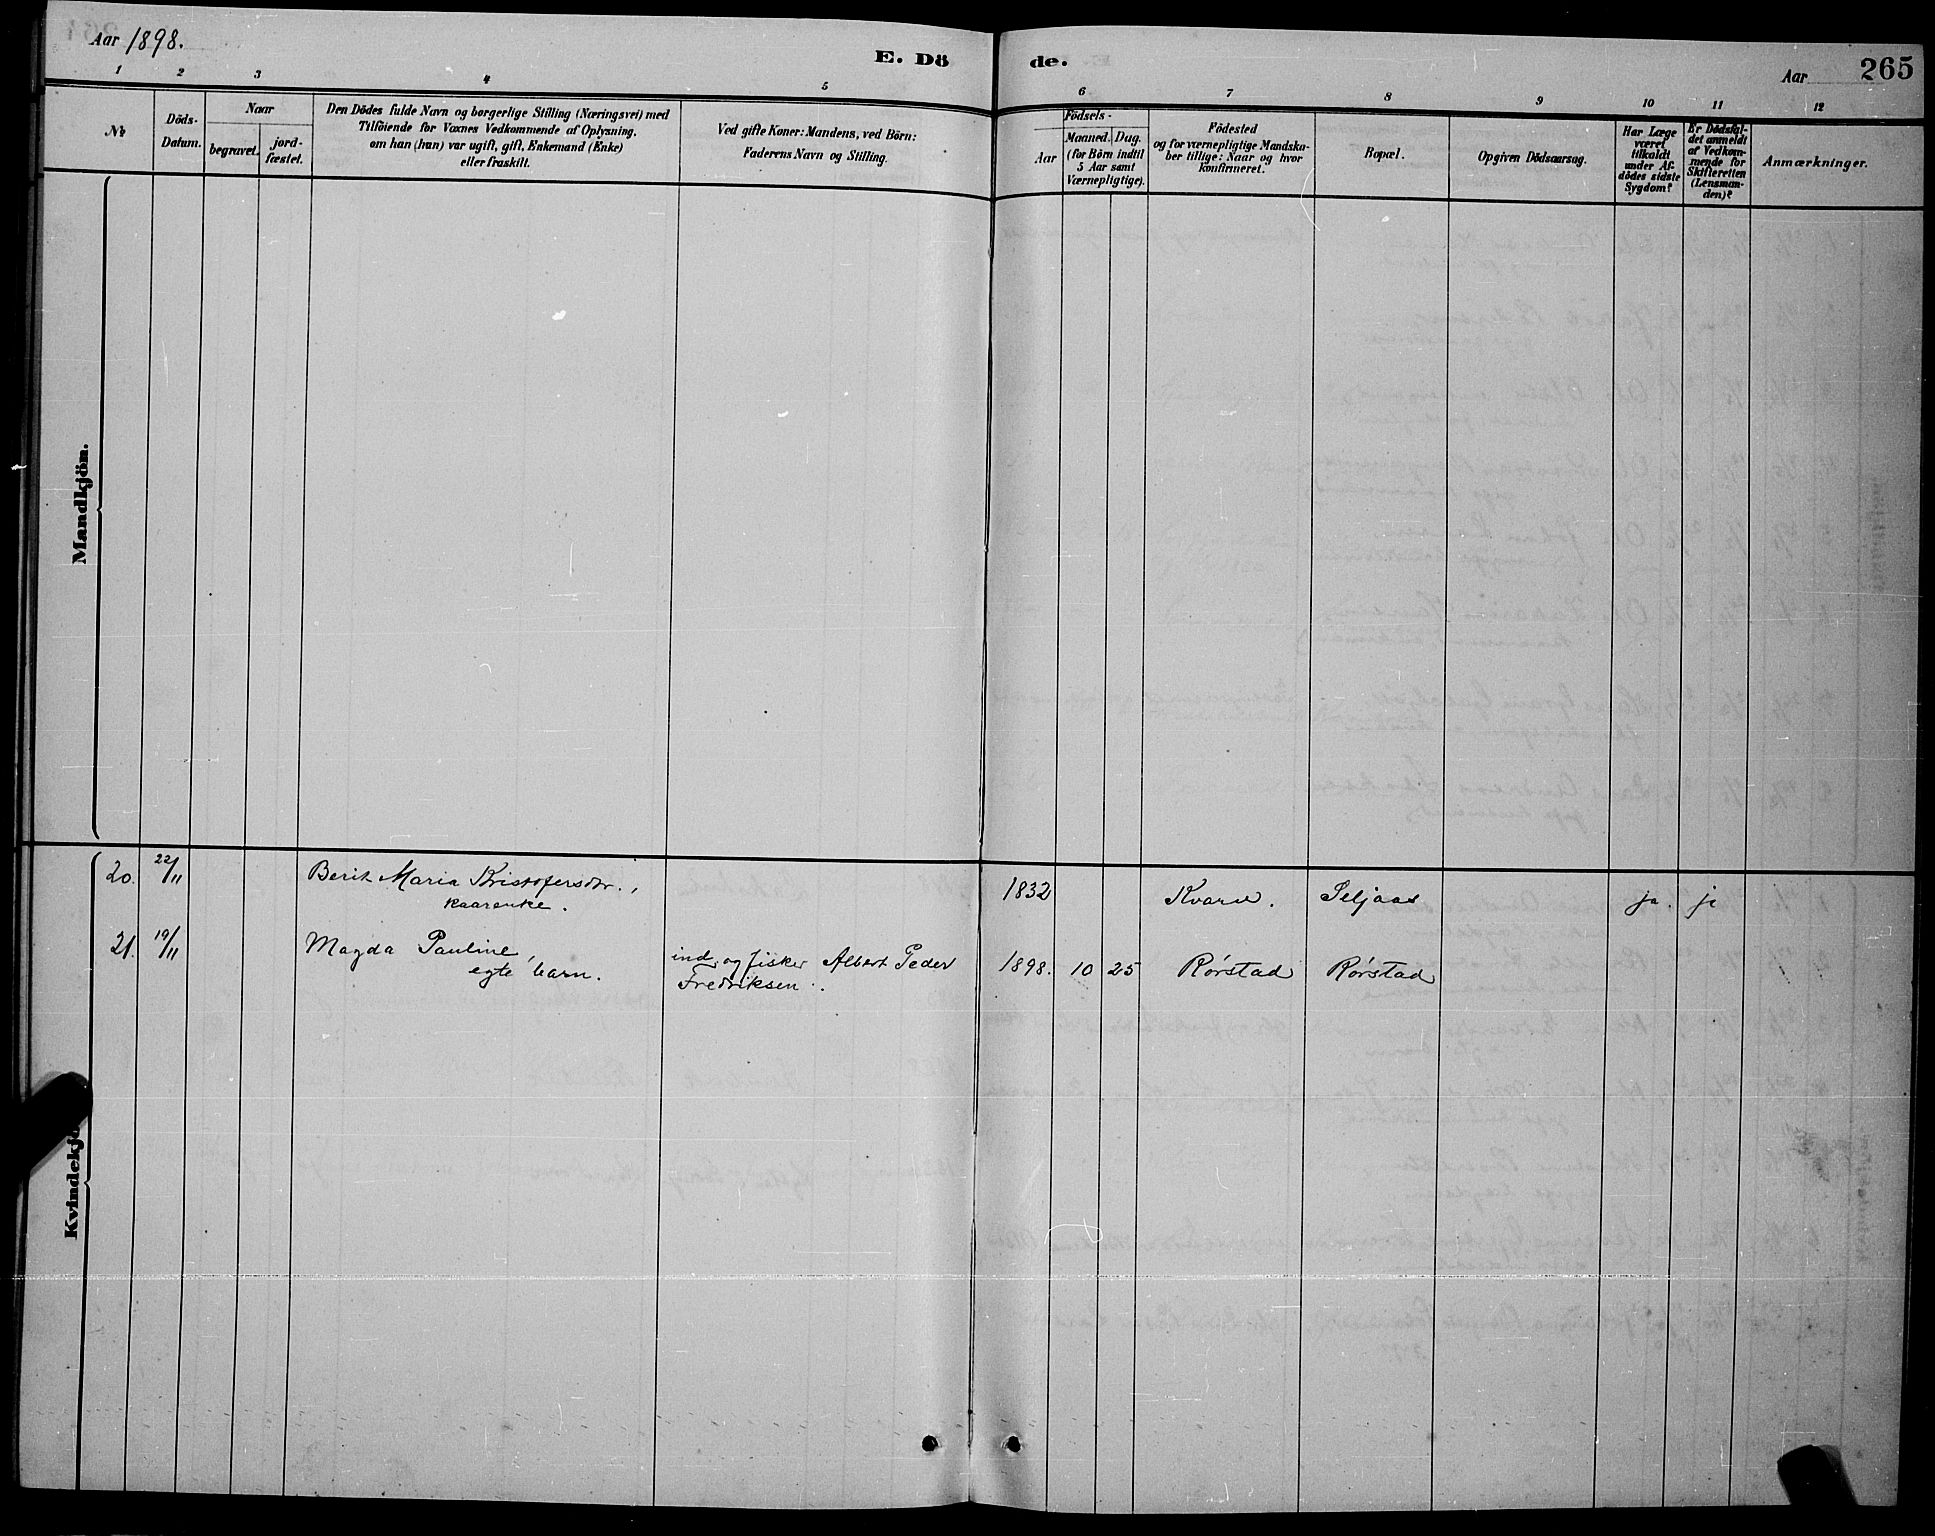 Aar 1898.
E. Dö de.
Aar 265
1 2 3 4 5 6 7 8 9 10 11 12
No
Döds-
Datum.
Naar
begravet.
jord-
fæstet.
Den Dödes fulde Navn og borgerlige Stilling (Næringsvei) med
Tilföiende for Voxnes Vedkommende af Oplysning,
om han (hun) var ugift, gift, Enkemand (Enke)
eller fraskilt.
Ved gifte Koner: Mandens, ved Börn:
Faderens Navn og Stilling.
Födsels-
Aar
Maaned. Dag.
(for Börn indtil
5 Aar samt
Værnepligtige).
Födested
og for værnepligtige Mandska-
ber tillige: Naar og hvor
konfirmeret.
Bopæl.
Opgiven Dödsaarsag.
Har Læge
været
tilkaldt
under Af-
dödes sidste
Sygdom?
Er Dödsfal-
det anmeldt
af Vedkom-
mende for
Skifteretten
(Lensman-
den)?
Anmærkninger.
Mandkjön.
Kvindekjö
20. 22/11 Berit Maria Kristofersdr., 1832 Kvarv. Seljaas ja. ja
kaarenke.
21. 19/11 Magda Pauline, ind. og fisker Albert Peder 1898. 10 25 Rørstad Rørstad
egte barn. Fredriksen.